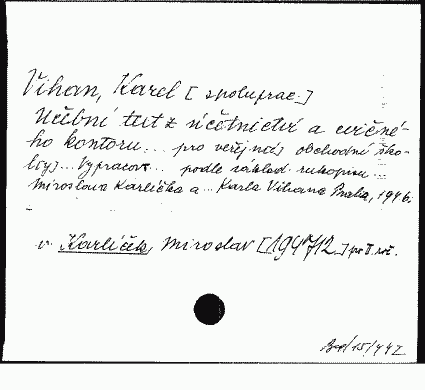 Vihan, Karel [spoluprac.]
Učební text z účetnictví a cvičné-
ho kontoru... pro veřej[né] obchodní ško-
ly... Vypracov... podle základ. rukopisu...
Miroslava Karlíčka a... Karla Vihana Praha, 1946.
v. Karlíček, Miroslav [1947/12] pro II. roč.